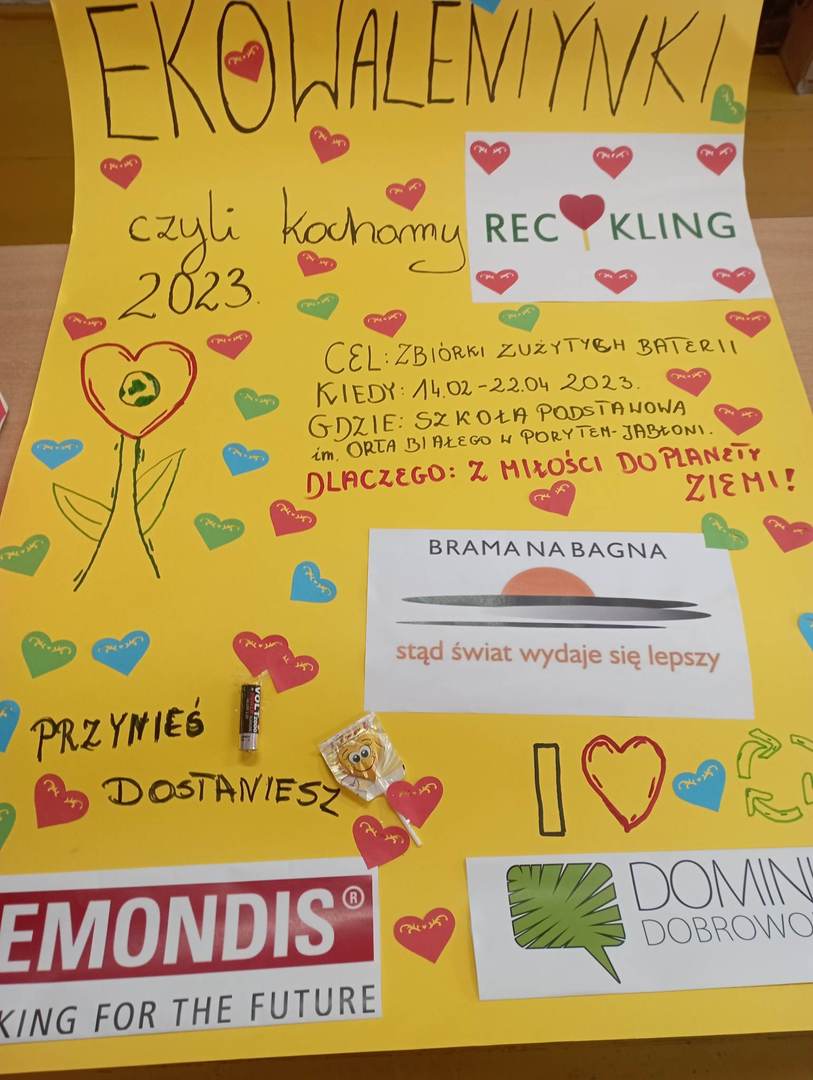 EKOWALENTYNKI
czyli kochamy
REC KLING
2023.
CEL: ZBIÓRKI ZUŻYTYCH BATERII
KIEDY: 14.02-22.04 2023.
GDZIE: SZKOŁA PODSTAWOWA
im. ORŁA BIAŁEGO W PORYTEM-JABŁONI.
DLACZEGO: Z MIŁOŚCI DO PLANETY
ZIEMI!
BRAMA NA BAGNA
stąd świat wydaje się lepszy
PRZYNIEŚ
DOSTANIESZ
I
EMONDIS®
KING FOR THE FUTURE
DOMINI
DOBROWO